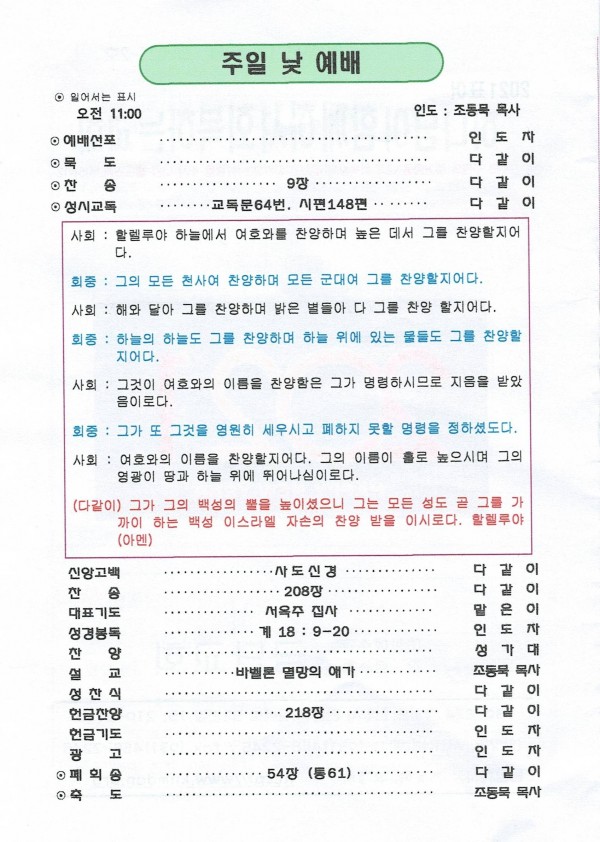 주일 낮 예배
⊙ 일어서는 표시
오전 11:00 인도 : 조동묵 목사
⊙ 예배선포 ········ 인 도 자
⊙ 묵 도 ········ 다 같 이
⊙ 찬 송 ········ 9장 ········ 다 같 이
⊙ 성시교독 ········ 교독문64번. 시편148편 ········ 다 같 이
사회 : 할렐루야 하늘에서 여호와를 찬양하며 높은 데서 그를 찬양할지어
다.
회중 : 그의 모든 천사여 찬양하며 모든 군대여 그를 찬양할지어다.
사회 : 해와 달아 그를 찬양하며 밝은 별들아 다 그를 찬양 할지어다.
회중 : 하늘의 하늘도 그를 찬양하며 하늘 위에 있는 물들도 그를 찬양할
지어다.
사회 : 그것이 여호와의 이름을 찬양함은 그가 명령하시므로 지음을 받았
음이로다.
회중 : 그가 또 그것을 영원히 세우시고 폐하지 못할 명령을 정하셨도다.
사회 : 여호와의 이름을 찬양할지어다. 그의 이름이 홀로 높으시며 그의
영광이 땅과 하늘 위에 뛰어나심이로다.
(다같이) 그가 그의 백성의 뿔을 높이셨으니 그는 모든 성도 곧 그를 가
까이 하는 백성 이스라엘 자손의 찬양 받을 이시로다. 할렐루야
(아멘)
신앙고백 ········ 사도신경 ········ 다 같 이
찬 송 ········ 208장 ········ 다 같 이
대표기도 ········ 서옥주 집사 ········ 맡 은 이
성경봉독 ········ 계 18 : 9-20 ········ 인 도 자
찬 양 ········ 성 가 대
설 교 ········ 바벨론 멸망의 애가 ········ 조동묵 목사
성 찬 식 ········ 다 같 이
헌금찬양 ········ 218장 ········ 다 같 이
헌금기도 ········ 인 도 자
광 고 ········ 인 도 자
⊙ 폐 회 송 ········ 54장 (통61) ········ 다 같 이
⊙ 축 도 ········ 조동묵 목사